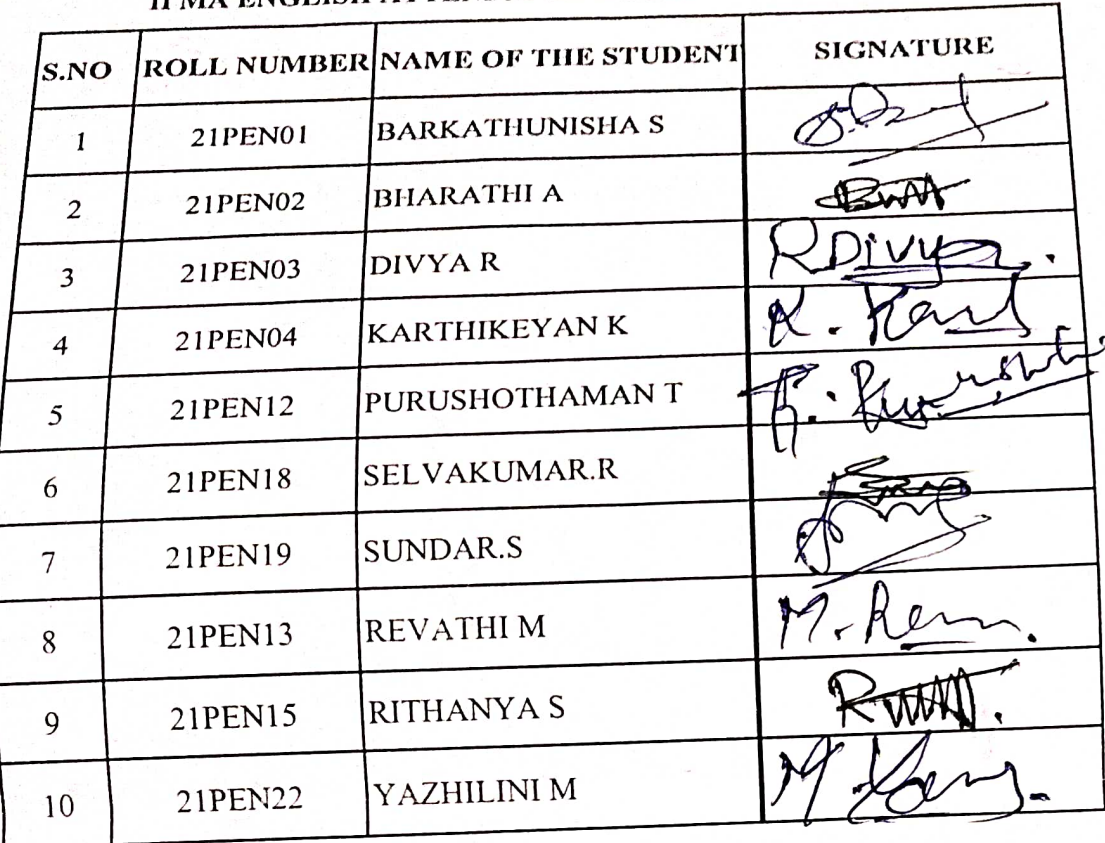 II MA ENGLISH
S.NO ROLL NUMBER NAME OF THE STUDENT SIGNATURE
1 21PEN01 BARKATHUNISHA S
2 21PEN02 BHARATHI A
3 21PEN03 DIVYA R R Divya.
4 21PEN04 KARTHIKEYAN K
5 21PEN12 PURUSHOTHAMAN T
6 21PEN18 SELVAKUMAR.R
7 21PEN19 SUNDAR.S
8 21PEN13 REVATHI M
9 21PEN15 RITHANYA S
10 21PEN22 YAZHILINI M